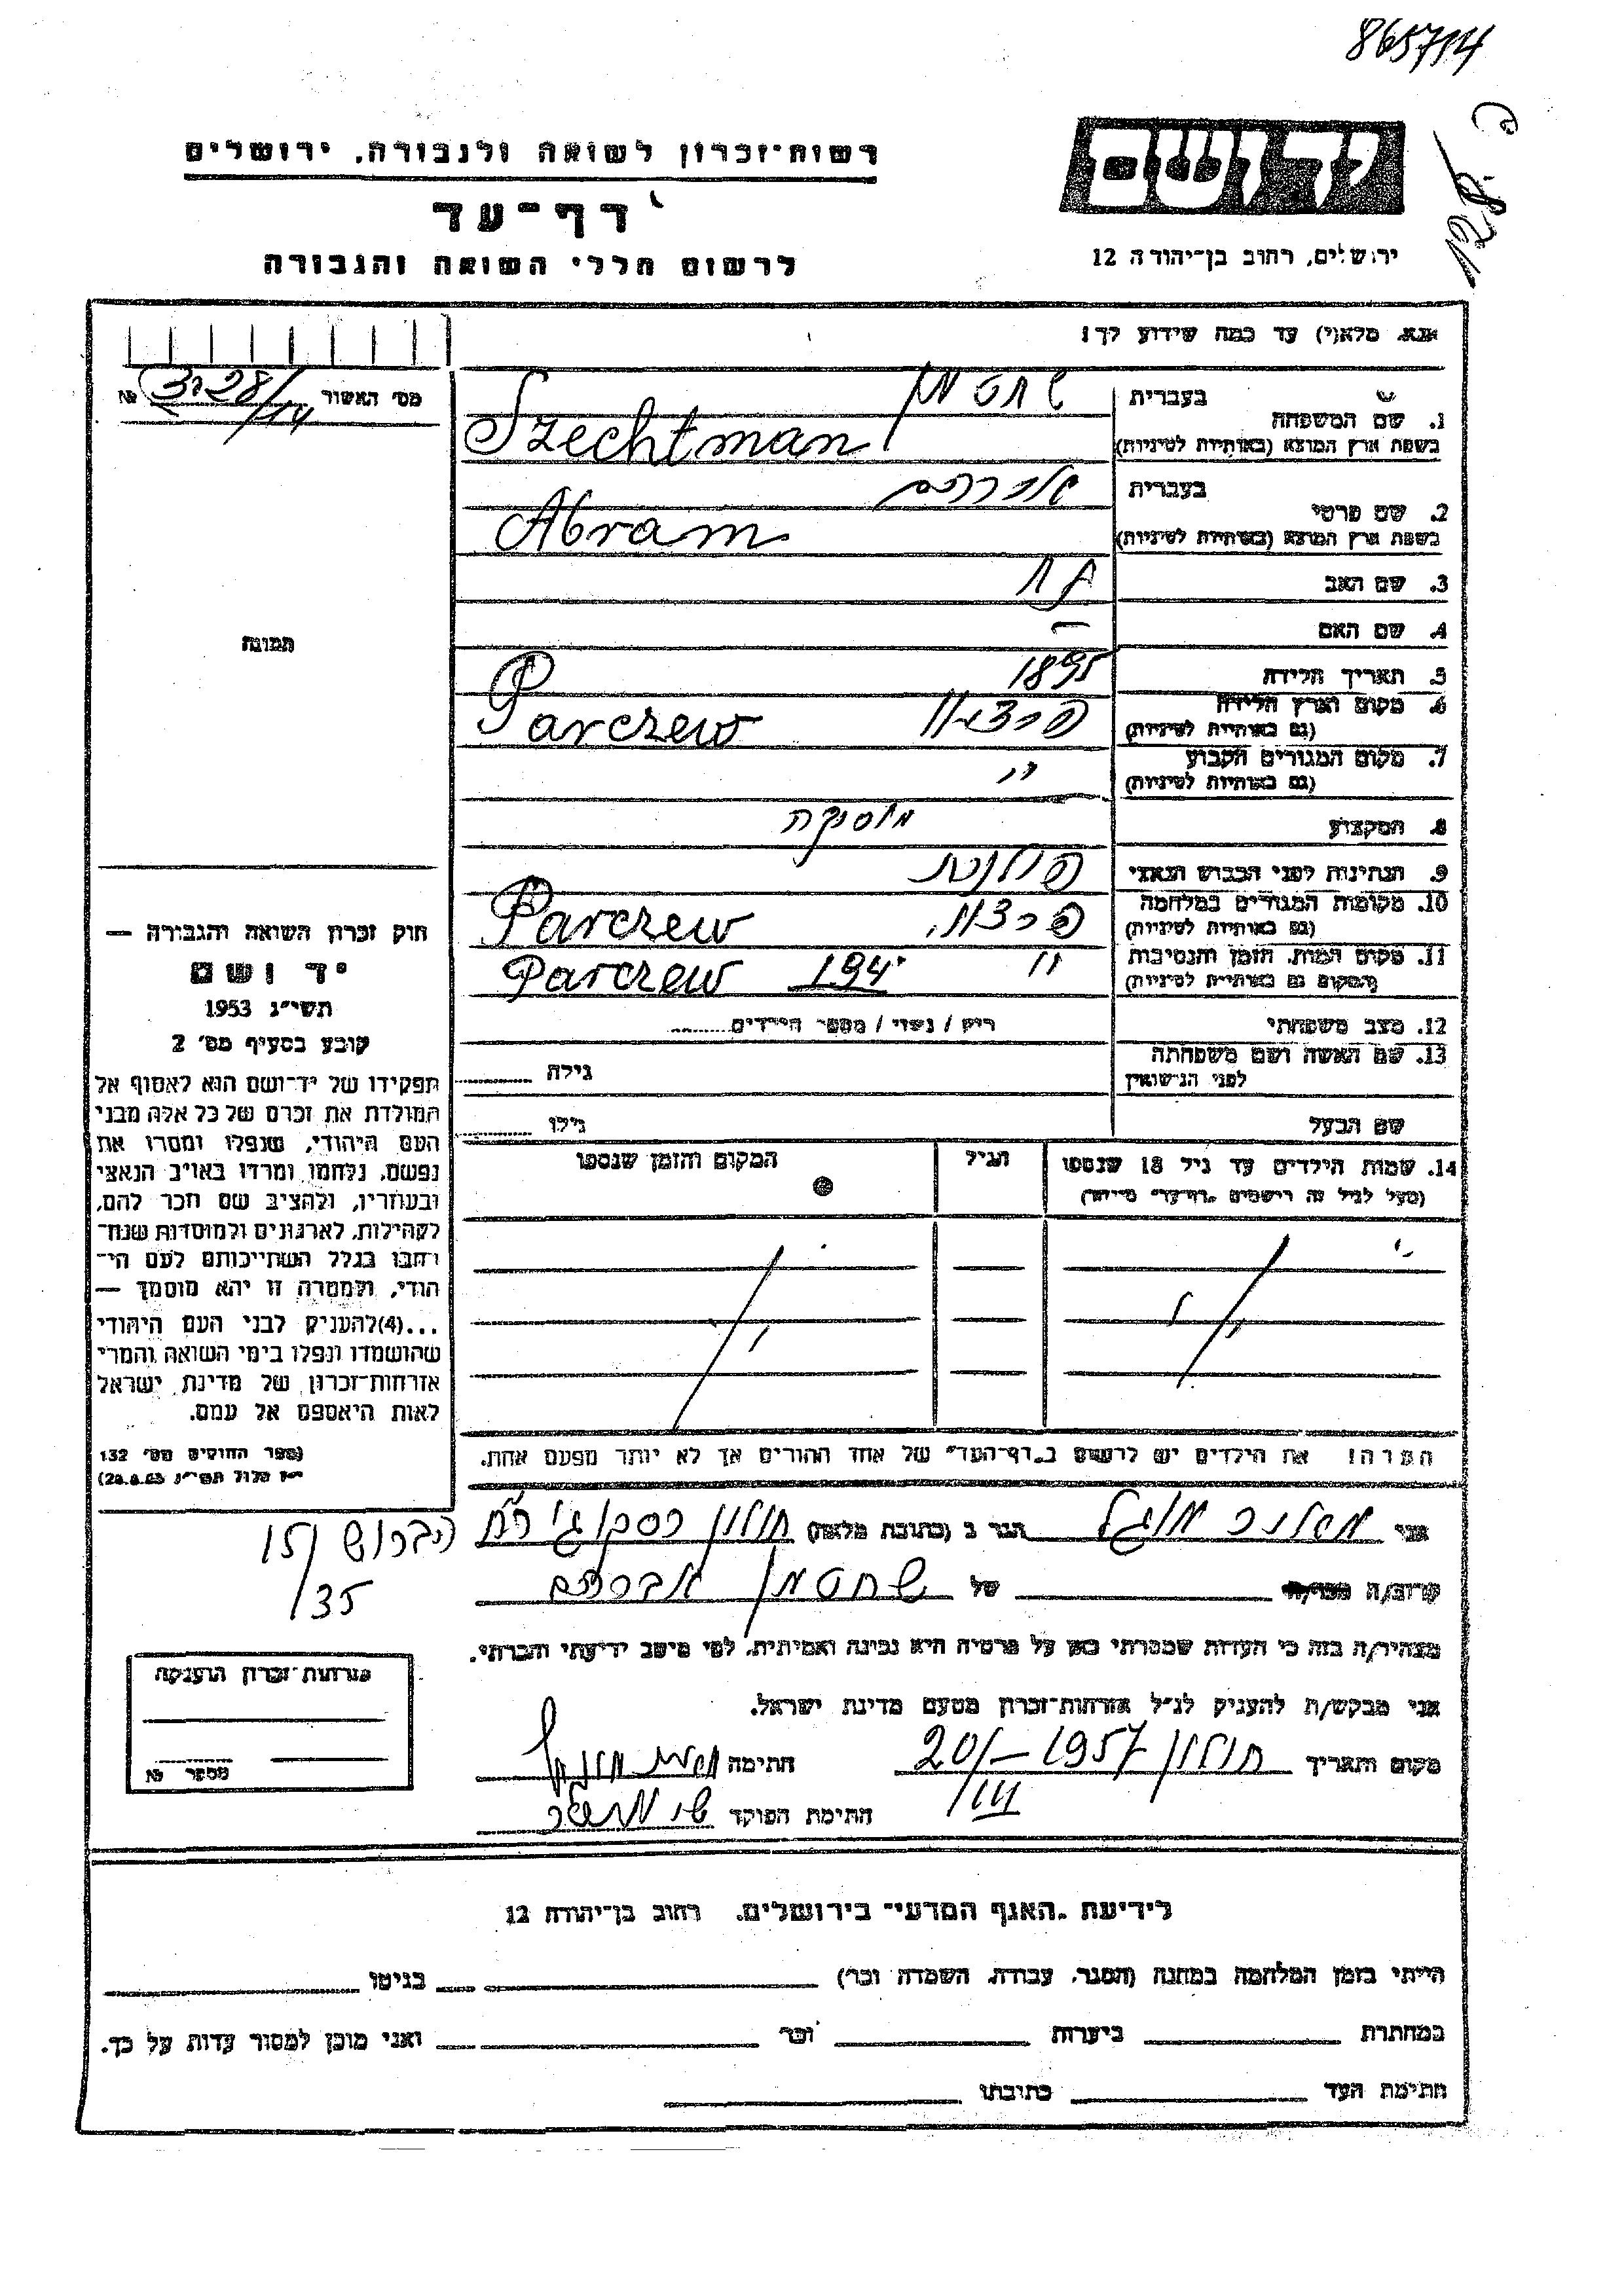 865714
רשות־זכרון לשואה ולגבורה, ירושלים
יד ושם
דף־עד
לרשום חללי השואה והגבורה
ירושלים, רחוב בן־יהודה 12
אנא, מלא(י) עד כמה שידוע לך!
מס' האשור №
1. שם המשפחה
בעברית שחטמן
בשפת ארץ המוצא (באותיות לטיניות) Szechtman
2. שם פרטי
בעברית אברהם
בשפת ארץ המוצא (באותיות לטיניות) Abram
3. שם האב
4. שם האם –
5. תאריך הלידה 1895
6. מקום וארץ הלידה
(גם באותיות לטיניות) Parczew
7. מקום המגורים הקבוע "
(גם באותיות לטיניות)
8. המקצוע
9. הנתינות לפני הכבוש הנאצי פולנית
10. מקומות המגורים במלחמה
(גם באותיות לטיניות) Parczew
11. מקום המות, הזמן והנסיבות "
(המקום גם באותיות לטיניות) Parczew 194
12. מצב משפחתי רוק / נשוי / מספר הילדים
13. שם האשה ושם משפחתה
לפני הנישואין גילה
שם הבעל גילו
14. שמות הילדים עד גיל 18 שנספו הגיל המקום והזמן שנספו
(מעל לגיל זה רושמים "דף־עד" מיוחד)
הערה! את הילדים יש לרשום ב"דף־העד" של אחד ההורים אך לא יותר מפעם אחת.
תמונה
חוק זכרון השואה והגבורה —
יד ושם
תשי"ג 1953
קובע בסעיף מס' 2
תפקידו של יד־ושם הוא לאסוף אל
המולדת את זכרם של כל אלה מבני
העם היהודי, שנפלו ומסרו את
נפשם, נלחמו ומרדו באויב הנאצי
ובעוזריו, ולהציב שם וזכר להם,
לקהילות, לארגונים ולמוסדות שנח־
רבו בגלל השתייכותם לעם הי־
הודי, ולמטרה זו יהא מוסמך —
...(4)להעניק לבני העם היהודי
שהושמדו ונפלו בימי השואה והמרי
אזרחות־זכרון של מדינת ישראל
לאות היאספם אל עמם.
(ספר החוקים מס' 132
אני הגר ב (כתובת מלאה) חולון
15/
/35
קרוב/ה מכר/ה של שחטמן אברהם
מצהיר/ה בזה כי העדות שמסרתי כאן על פרטיה היא נכונה ואמיתית, לפי מיטב ידיעתי והכרתי.
אני מבקש/ת להעניק לנ"ל אזרחות־זכרון מטעם מדינת ישראל.
מקום ותאריך חולון 20/III – 1957 חתימה
חתימת הפוקד
אזרחות־זכרון הוענקה
מספר №
לידיעת "האגף המדעי" בירושלים, רחוב בן־יהודה 12
הייתי בזמן המלחמה במחנה (הסגר, עבודה, השמדה וכו') בגיטו
במחתרת ביערות וכו' ואני מוכן למסור עדות על כך.
חתימת העד כתובתו